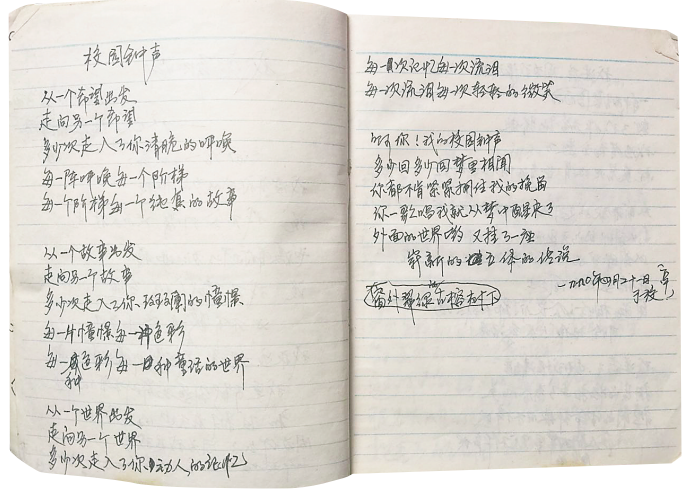 校园钟声
从一个希望出发
走向另一个希望
多少次走入了你清脆的呼唤
每一阵呼唤每一个阶梯
每一个阶梯每一个纯真的故事
从一个故事出发
走向另一个故事
多少次走入了你斑斓的憧憬
每一片憧憬每一种色彩
每一种色彩每一种童话的世界
从一个世界出发
走向另一个世界
多少次走入了你动人的记忆
每一次记忆每一次流泪
每一次流泪每一次轻轻的微笑
啊你！我的校园钟声
多少回多少回梦里相闻
你都不肯紧紧抓住我的挽留
你一歌唱我就从梦中醒来了
外面的世界哟 又挂了一座
崭新的立体的传说
一九九〇年四月二十一日
窗外翠绿的榕树下